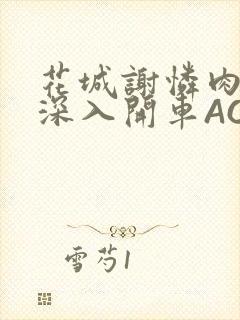 花城謝憐肉
深入開車AO
雪芍1